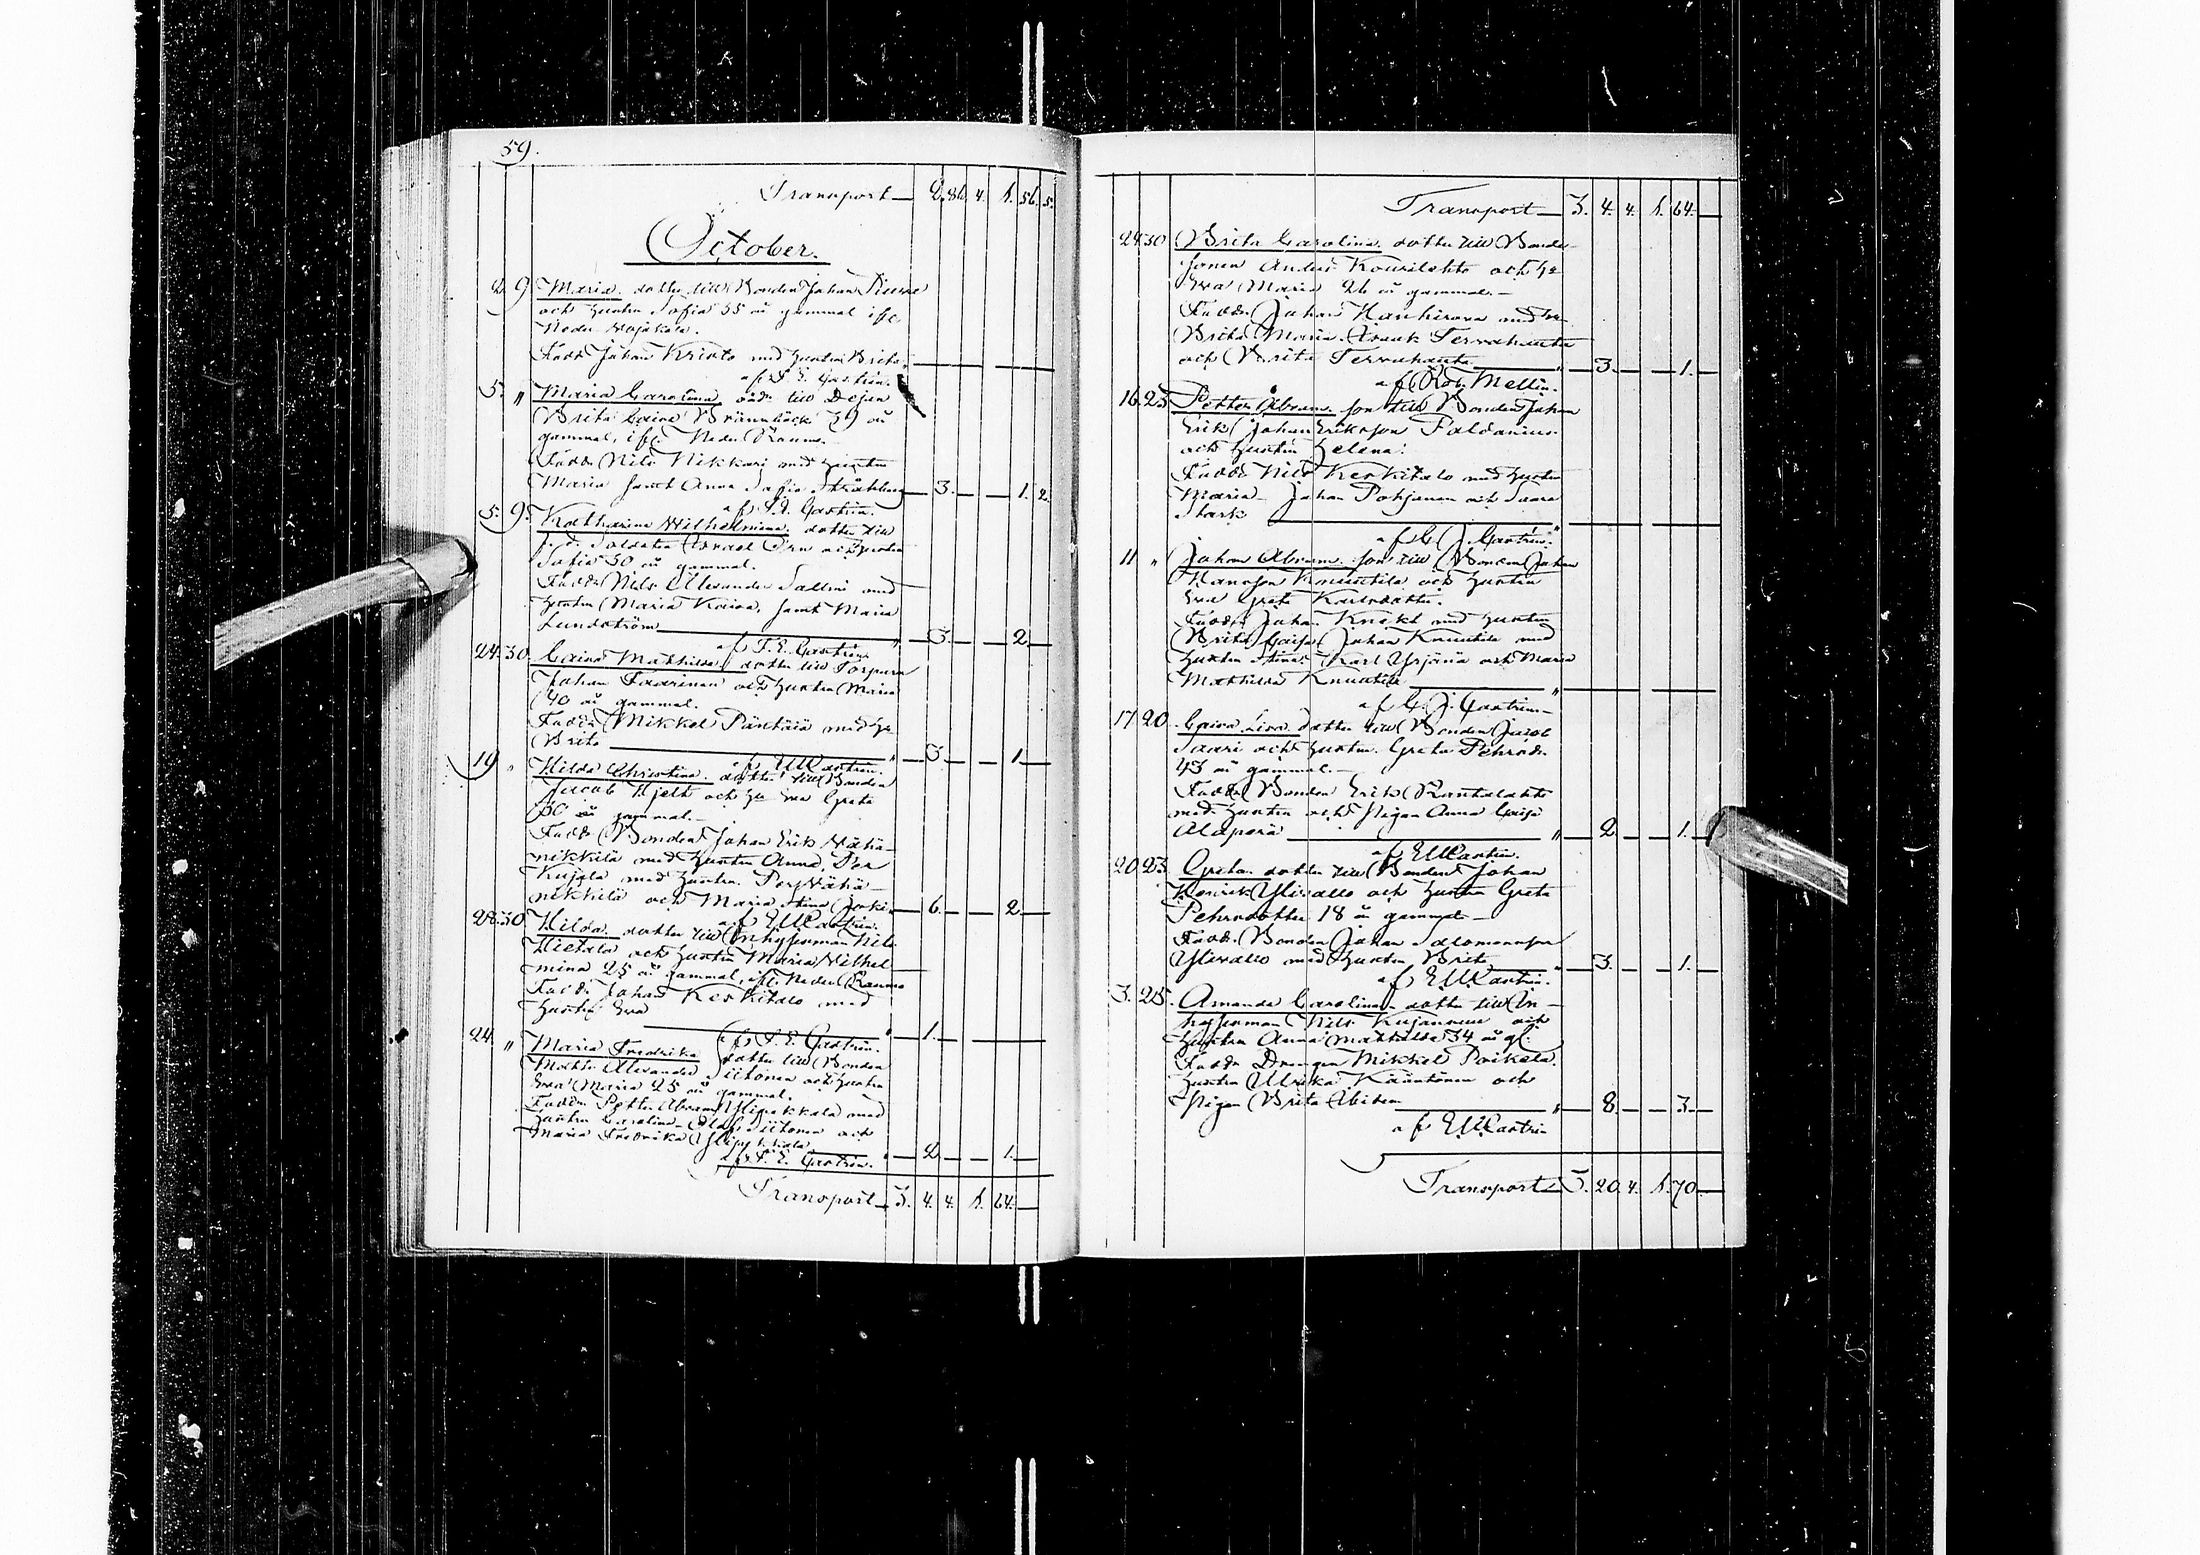 59.
Transport 2. 86. 4. 1. 56. 5.
October.
2. 9. Maria dotter till Bonden Johan
och hustru Sofia 35 år gammal
Neder Vojakala.
Fadd. Johan Kristo med hustru Brita
af F. E. Castrén.
5. " Maria Carolina till Dejan
Brita Caisa Brännbäck 29 år
gammal, Neder Raumo.
Fadd. Nils Nikkari med hustru
Maria samt Anna Sofia 3. 1. 2.
af F. E. Castrén.
5. 9. Katharina Wilhelmina dotter till
Soldaten Israel Örn och hustru
Sofia 30 år gammal.
Fadd. Nils Alexander med
hustru Maria samt Maria
Lundström " 3. 2.
af F. E. Castrén.
24. 30. Caisa Mathilda dotter till Torparen
Johan Saarinen och hustru Maria
40 år gammal.
Fadd. Mikkel Päntäiä med h.
Brita " 3. 1.
af E W Castrén.
19 " Hilda Christina dotter till Bonden
Jacob Hjelt och hu Eva Greta
år gammal.
Fadd. Bonden Johan Erik Vähä-
nikkilä med hustru Anna, Per
Kujala med hustru. Per Vähä-
nikkilä och Maria Stina 6. 2
af E W Castrén.
28. 30. Hilda dotter till Inhysesman Nils
Hietala och hustru Maria Vilhel
mina 25 år gammal, Neder Raumo
Fadd. Johan Keskitalo med
hustru Eva " 1.
af F. E. Castrén.
24. " Maria Fredrika dotter till Bonden
Matts Alexander Siitonen och hustru
Eva Maria 25 år gammal.
Fadd. Petter Abram Ylipekkala med
hustru Carolina, Siitonen och
Maria Fredrika Ylipekkala " 2. 1.
af F. E. Castrén.
Transport 3. 4. 4. 1. 64.
Transport 3. 4. 4. 1. 64.
24. 30 Brita Carolina dotter till Bonde
sonen Anders Kourilehto och h.
Eva Maria 26 år gammal.
Fadd. Johan Hanhirova med h.
Brita Maria. Isaak Tervahauta
och Brita Tervahauta " 3. 1.
af Rob. Mellin.
16. 23. Petter Abram son till Bonden Johan
Erik Johan Eriksson Paldanius
och hustru Helena.
Fadd. Nils Keskitalo med hustru
Maria Johan Pohjanen och Saara
Stark "
af C. J. Castrén.
11 " Johan Abram son till Bonden Johan
Hansson Knuutila och hustru
Eva Greta Karlsdotter.
Fadd. Johan Knekt med hustru
Brita Caisa, Johan Knuutila med
hustru Stina, Karl Yrjänä och Maria
Mathilda Knuutila "
af C. J. Castrén.
17 20. Caisa Lisa dotter till Bonden Jacob
Saari och hustru Greta Pehrsdr.
43 år gammal.
Fadd. Bonden Erik Rantalahti
med hustru och Pigan Anna Caisa
Alaperä " 2. 1.
af E W Castrén.
20. 23. Greta dotter till Bonden Johan
Henrik Ylivallo och hustru Greta
Pehrsdotter 18 år gammal
Fadd. Bonden Johan Salomonsson
Ylivallo med hustru Brita " 3. 1.
af E W Castrén.
3. 25. Amanda Carolina dotter till In-
hysesman Nils Kujansuu och
hustru Anna Mathilda 34 år gl.
Fadd. Drengen Mikkel Poikela
hustru Ulrika Kääntönen och
Pigan Brita " 8. 3.
af E W Castrén
Transport 3. 20. 4. 1. 70.